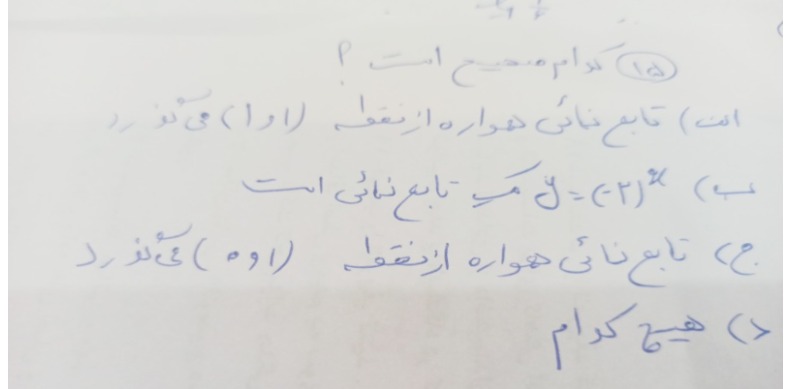 ۱۵ کدام صحیح است ؟
الف) تابع نمائی همواره از نقطه (۱ و ۱) می‌گذرد
ب) y = (-۲)^x یک تابع نمائی است
ج) تابع نمائی همواره از نقطه (۱ و ۰) می‌گذرد
د) هیچ کدام